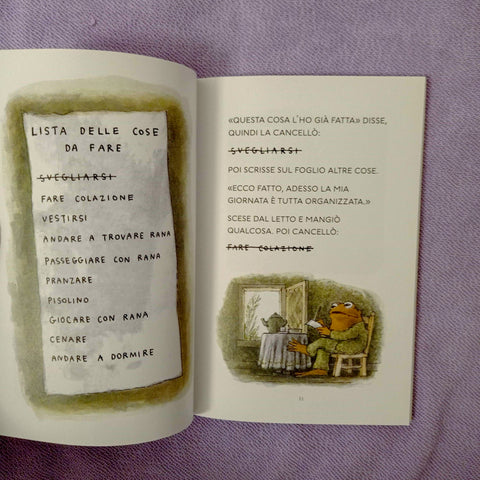 LISTA DELLE COSE
DA FARE
SVEGLIARSI
FARE COLAZIONE
VESTIRSI
ANDARE A TROVARE RANA
PASSEGGIARE CON RANA
PRANZARE
PISOLINO
GIOCARE CON RANA
CENARE
ANDARE A DORMIRE
«QUESTA COSA L'HO GIÀ FATTA» DISSE,
QUINDI LA CANCELLÒ:
SVEGLIARSI
POI SCRISSE SUL FOGLIO ALTRE COSE.
«ECCO FATTO, ADESSO LA MIA
GIORNATA È TUTTA ORGANIZZATA.»
SCESE DAL LETTO E MANGIÒ
QUALCOSA. POI CANCELLÒ:
FARE COLAZIONE